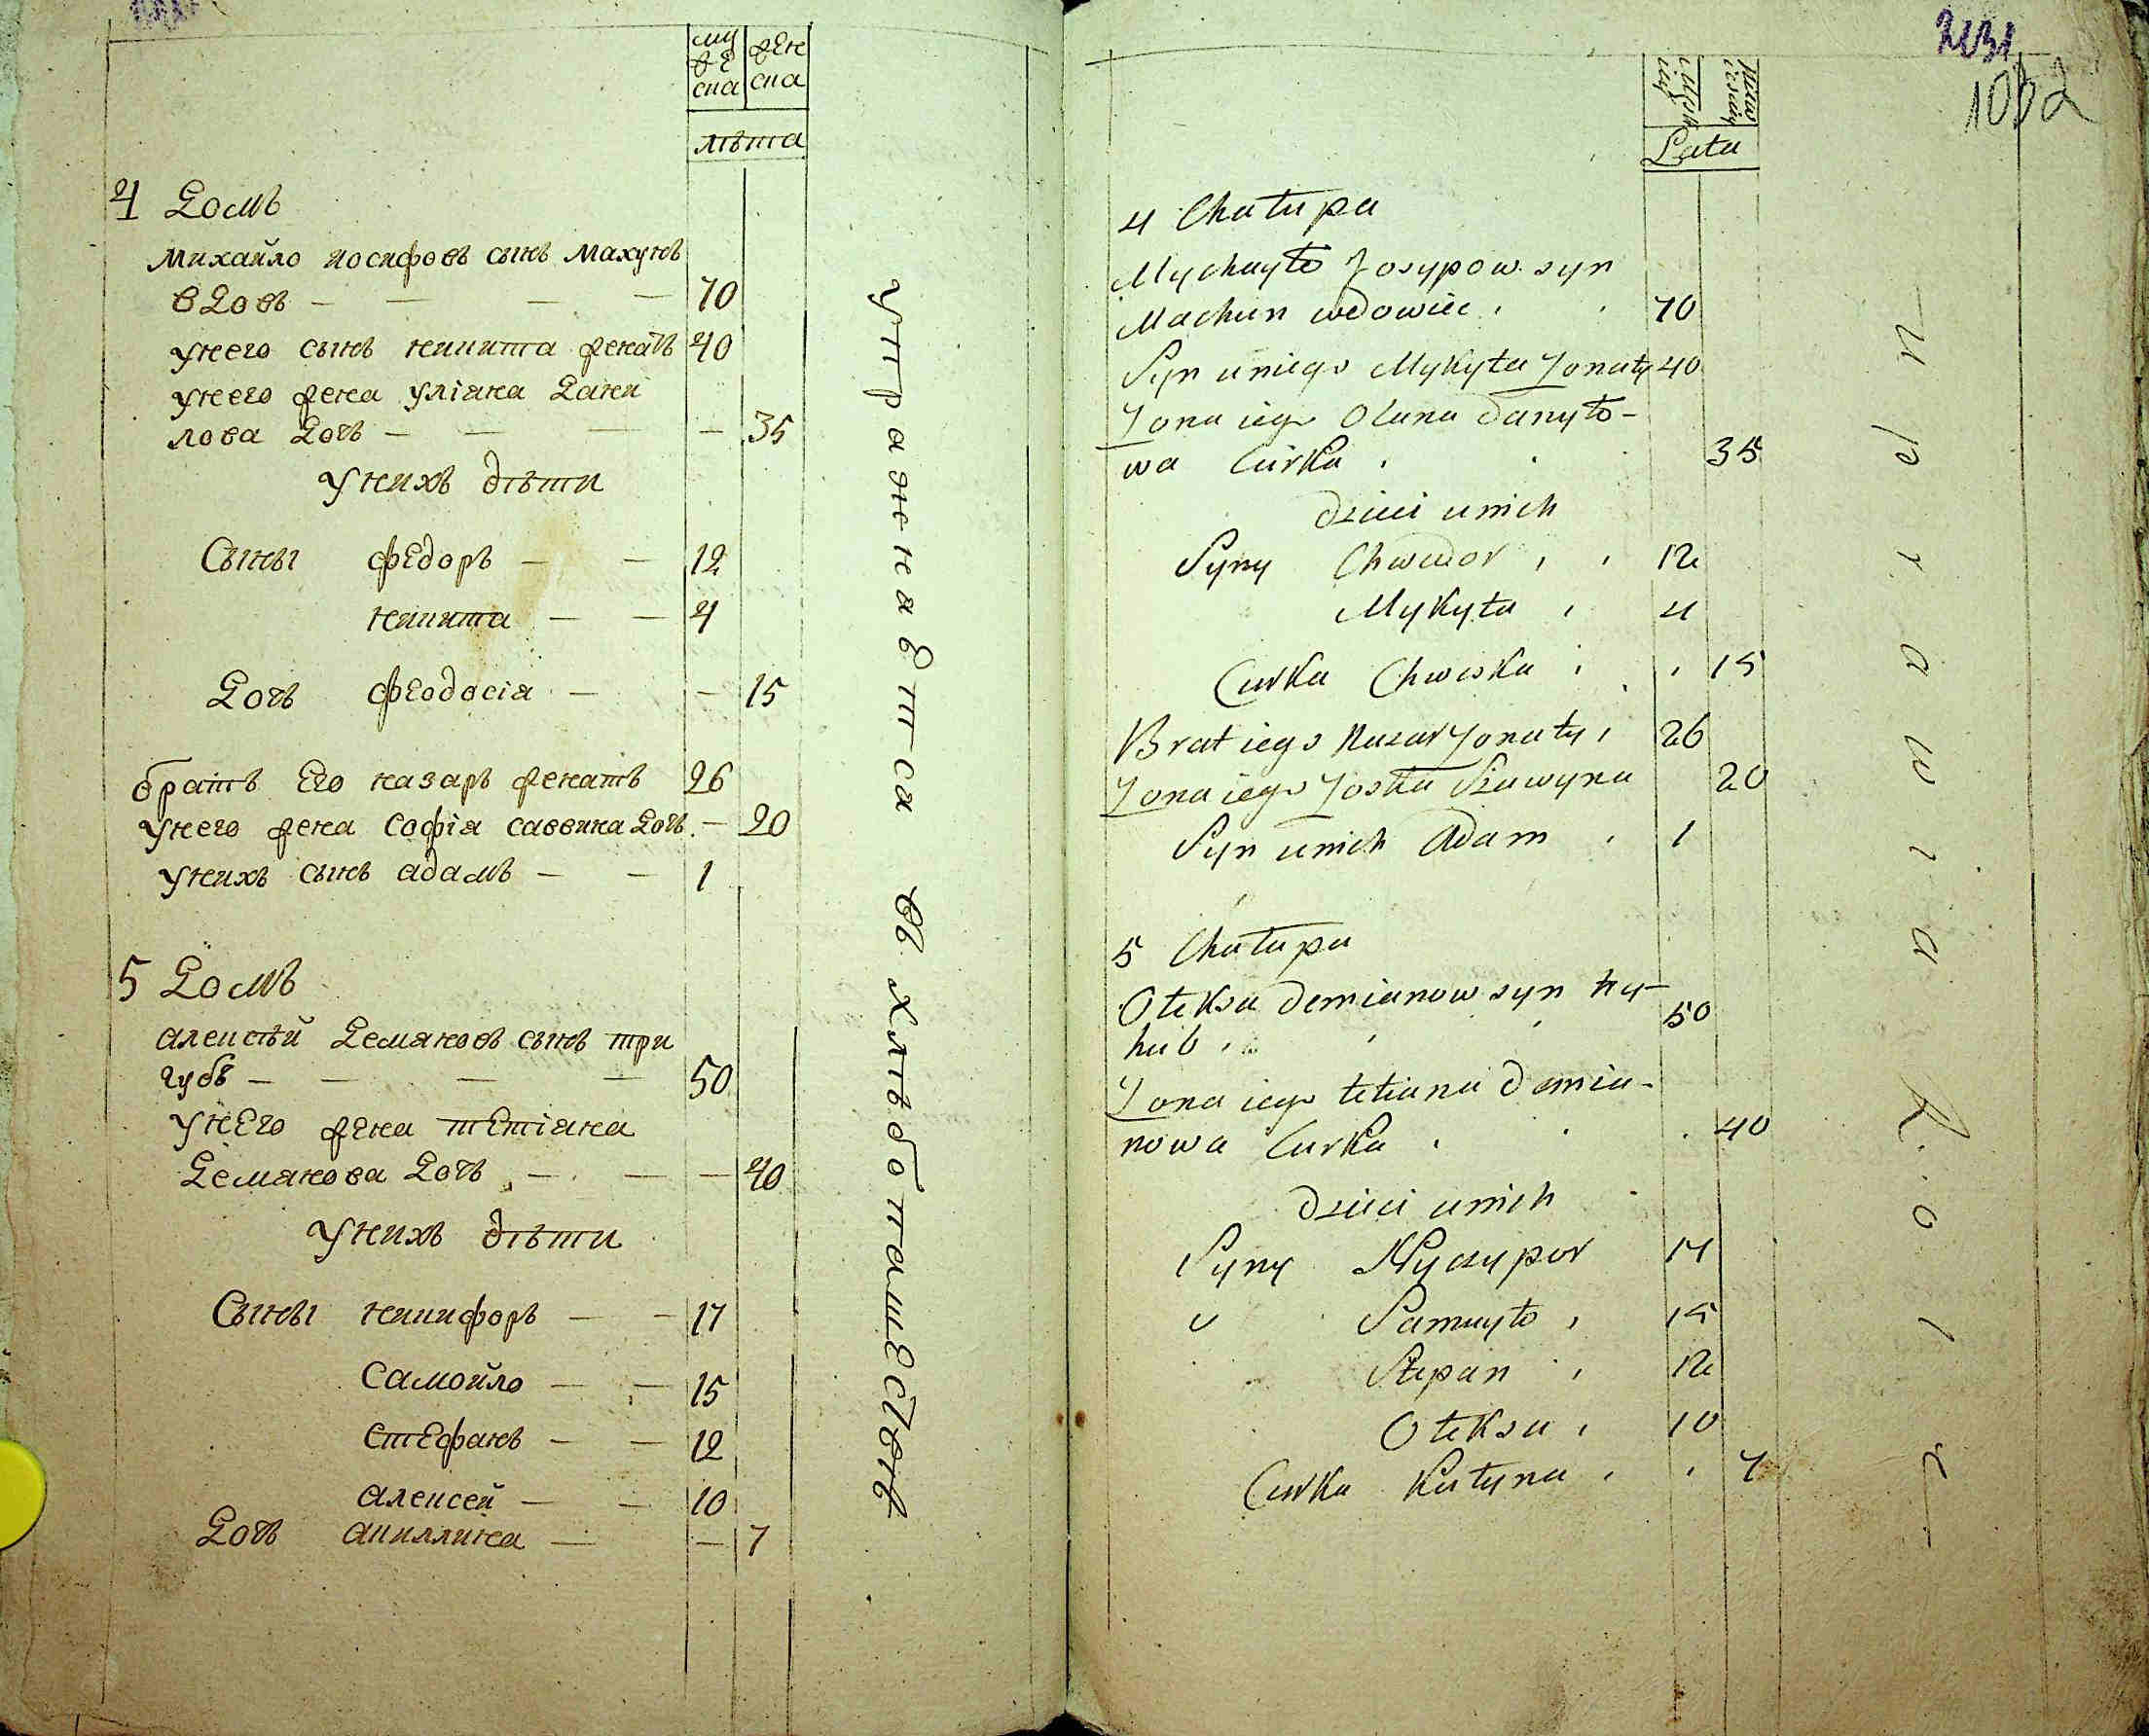 му
же
ска
жен
ска
лѣта
4 Домъ
михайло иосифовъ сынъ махунъ
вдовъ — — — — 70
унего сынъ никита женатъ 40
унего жена уліяна дани
лова дочь — — — — 35
унихъ дѣти
Сыны федоръ — — 12
никита — — 4
дочь феодосія — — 15
братъ его назаръ женатъ 26
унего жена софія саввина дочь — 20
унихъ сынъ адамъ — — 1
5 Домъ
алексѣй демяновъ сынъ три
губъ — — — — 50
унего жена тетіяна
демянова дочь — — — 40
унихъ дѣти
Сыны никифоръ — — 17
самойло — — 15
стефанъ — — 12
алексей — — 10
дочь акиллина — — 7
упражнаются въ хлѣбопашествѣ
1052
Lata
4 Chałupa
Mychayło Josypow syn
Machun wdowiec 70
Syn uniego Mykyta Żonaty 40
Żona iego Olana Danyło-
wa Curka 35
dzieci unich
Syny Chwedor 12
Mykyta 4
Curka Chweska 15
Brat iego Nazar Żonaty 26
Żona iego Joska Sawyna 20
Syn unich Adam 1
5 Chałupa
Ołeksa Demianow syn try-
hub 50
Żona iego tetiana Demia-
nowa Curka 40
dzieci unich
Syny Nyczypor 17
" Samuyło 15
Stepan 12
Ołeksa 10
Curka Kułyna 7
uprawia Rolę